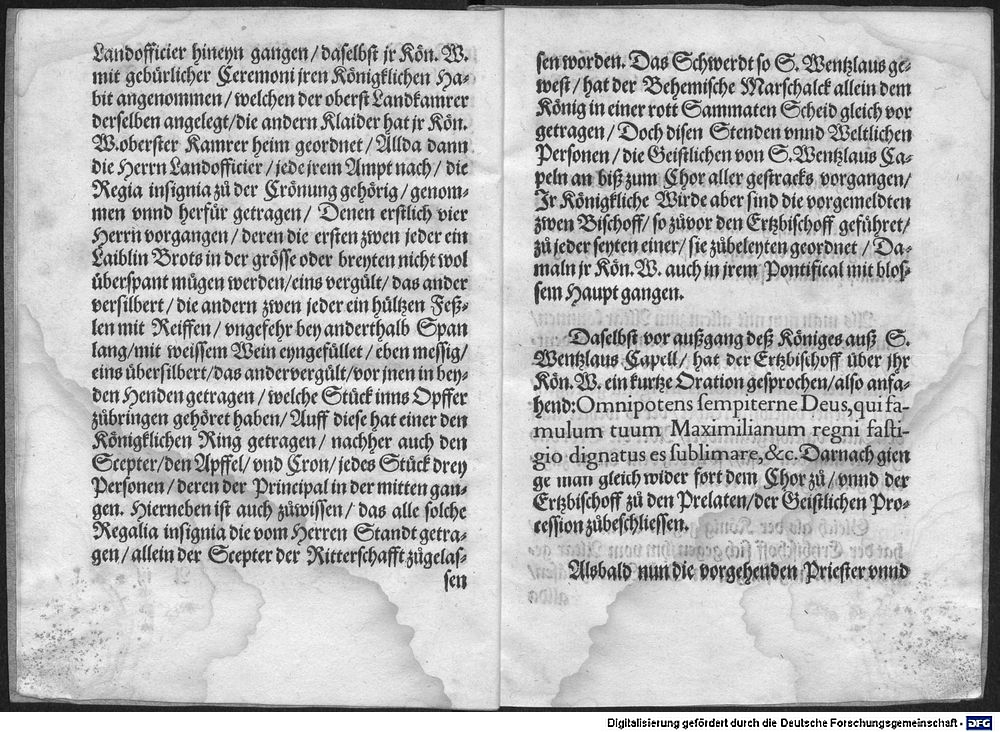 Landofficier hineyn gangen / daselbst jr Kön. W.
mit gebürlicher Ceremoni jren Königklichen Ha-
bit angenommen / welchen der oberst Landkamrer
derselben angelegt / die andern Klaider hat jr Kön.
W. oberster Kamrer heim geordnet / Allda dann
die Herrn Landofficier / jede jrem Ampt nach / die
Regia insignia zů der Crönung gehörig / genom-
men vnnd herfür getragen / Denen erstlich vier
Herrn vorgangen / deren die ersten zwen jeder ein
Laiblin Brots in der grösse oder breyten nicht wol
überspant mügen werden / eins vergült / das ander
versilbert / die andern zwen jeder ein hültzen Feß-
len mit Reiffen / vngefehr bey anderthalb Span
lang / mit weissem Wein eyngefüllet / eben messig /
eins übersilbert / das ander vergült / vor jnen in bey-
den Henden getragen / welche Stück inns Opffer
zůbringen gehöret haben / Auff diese hat einer den
Königklichen Ring getragen / nachher auch den
Scepter / den Apffel / vnd Cron / jedes Stück drey
Personen / deren der Principal in der mitten gan-
gen. Hierneben ist auch zůwissen / das alle solche
Regalia insignia die vom Herren Standt getra-
gen / allein der Scepter der Ritterschafft zůgelas-
sen
sen worden. Das Schwerdt so S. Wentzlaus ge-
west / hat der Behemische Marschalck allein dem
König in einer rott Sammaten Scheid gleich vor
getragen / Doch disen Stenden vnnd Weltlichen
Personen / die Geistlichen von S. Wentzlaus Ca-
peln an biß zum Chor aller gestracks vorgangen /
Jr Königkliche Wirde aber sind die vorgemeldten
zwen Bischoff / so zůvor den Ertzbischoff geführet /
zů jeder seyten einer / sie zůbeleyten geordnet / Da-
maln jr Kön. W. auch in jrem Pontifical mit blos-
sem Haupt gangen.
Daselbst vor außgang deß Königes auß S.
Wentzlaus Capell / hat der Ertzbischoff über jhr
Kön. W. ein kurtze Oration gesprochen / also anfa-
hend: Omnipotens sempiterne Deus, qui fa-
mulum tuum Maximilianum regni fasti-
gio dignatus es sublimare, &c. Darnach gien
ge man gleich wider fort dem Chor zů / vnnd der
Ertzbischoff zů den Prelaten / der Geistlichen Pro-
cession zůbeschliessen.
Alsbald nun die vorgehenden Priester vnnd
Digitalisierung gefördert durch die Deutsche Forschungsgemeinschaft - DFG